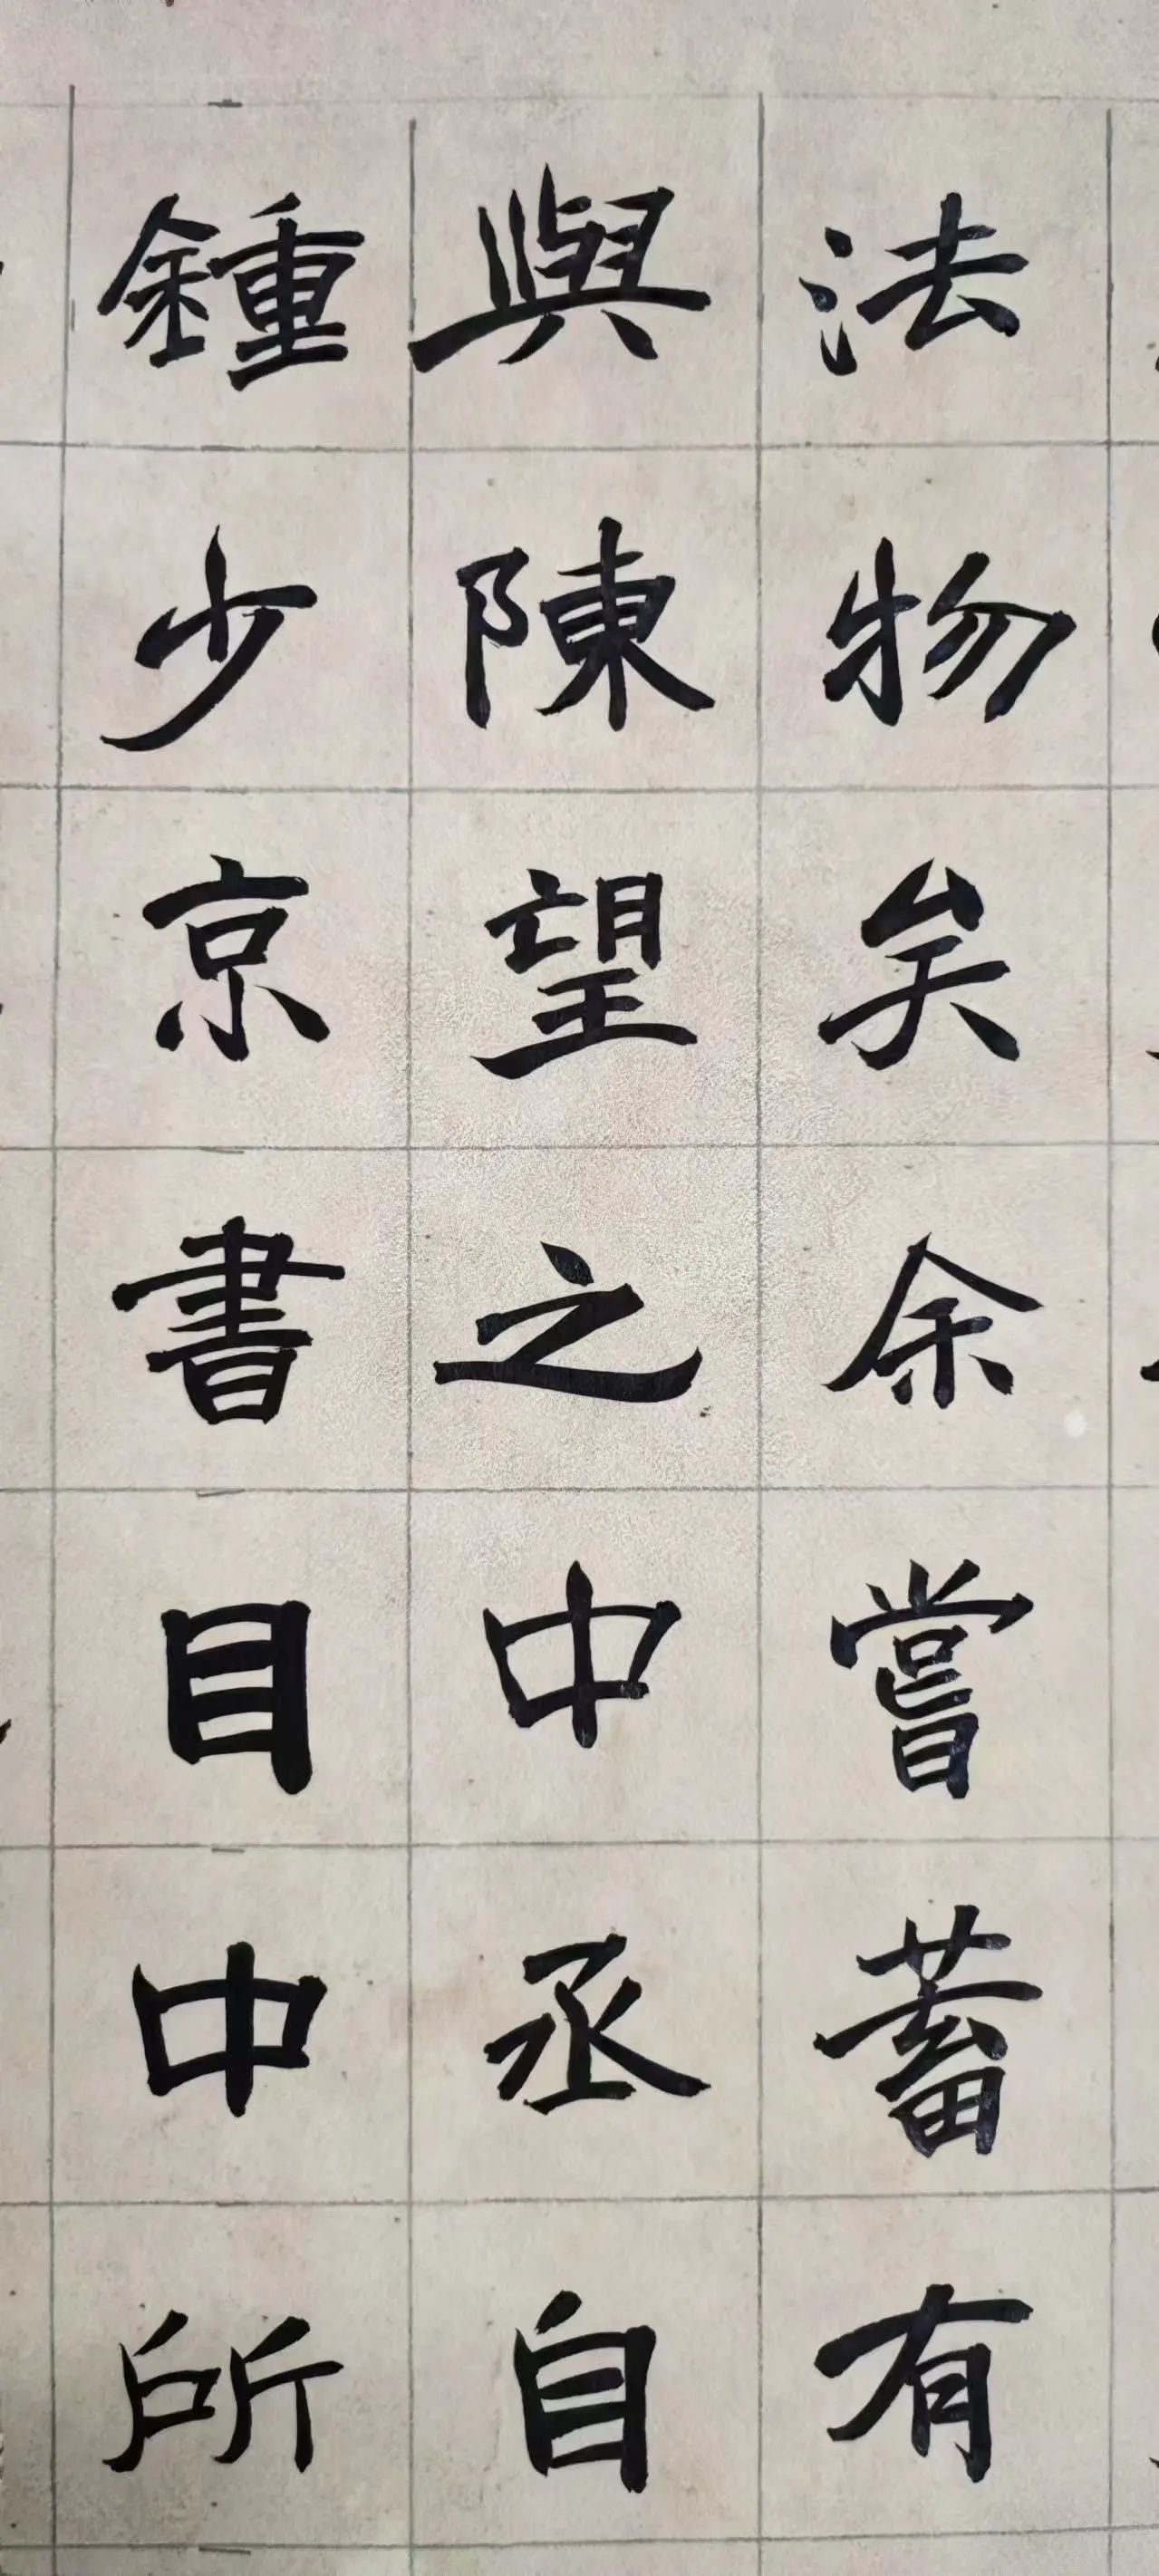 法物矣余嘗蓄有
與陳望之中丞自
鍾少京書目中所